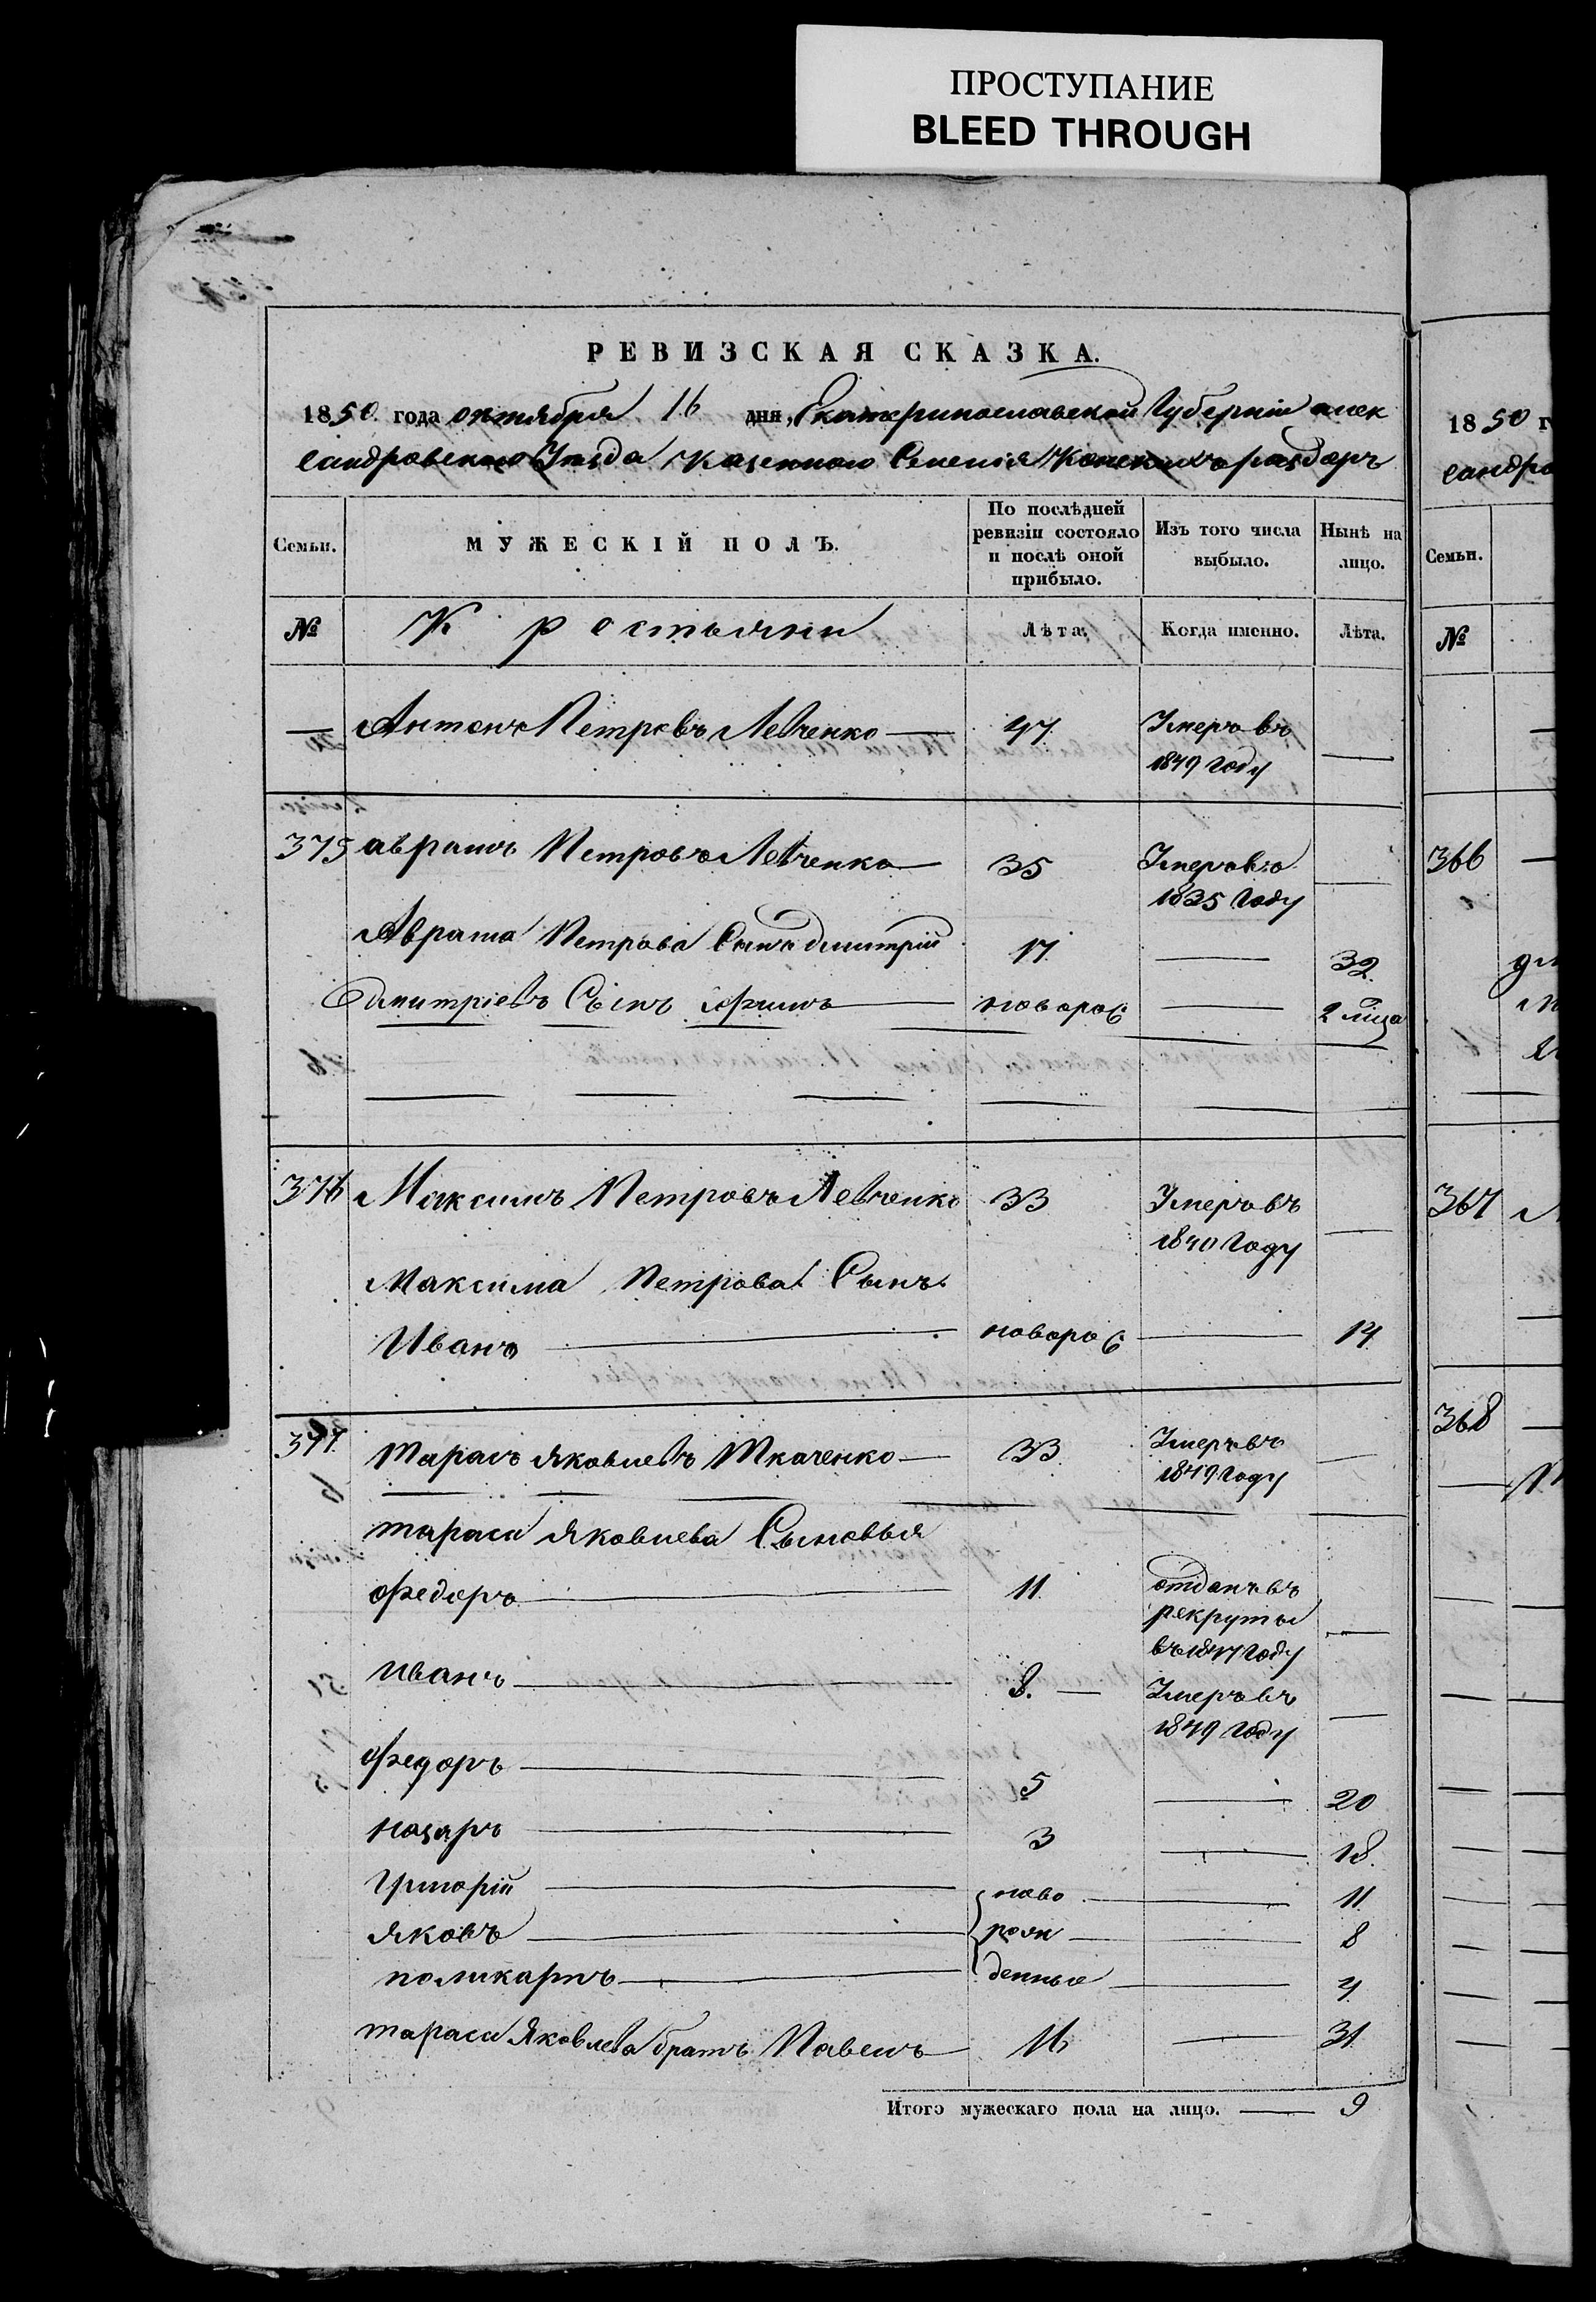 ПРОСТУПАНИЕ
BLEED THROUGH
РЕВИЗСКАЯ СКАЗКА.
1850 года октября 16 дня, Екатеринославской Губерніи алек
сандровского Уезда Казенного Селенія Конскихъ раздоръ
Семьи.
МУЖЕСКІЙ ПОЛЪ.
По послѣдней ревизіи состояло и послѣ оной прибыло.
Изъ того числа выбыло.
Нынѣ на лицо.
№ Крестьяни Лѣта. Когда именно. Лѣта.
— Антонъ Петровъ Левченко — 47 Умеръ въ
1849 Году —
375 аврамъ Петровъ Левченко — 35 Умеръ въ
1835 Году —
Аврама Петрова Сынъ дмитрій 17 — 32
дмитріевъ Сынъ — новорос — 2 лица
376 Максимъ Петровъ Левченко 33 Умеръ въ
1840 Году —
Максима Петрова Сынъ
Иванъ — новорос — 14
377 тарасъ яковлевъ Ткаченко — 33 Умеръ въ
1849 Году —
тараса яковлева Сыновья
федоръ — 11 отданъ въ
рекруты
въ 1847 Году —
иванъ — 8. — Умеръ въ
1849 Году —
федоръ — 5 — 20
назаръ — 3 — 18
Григорій — ново — 11
яковъ — рож — 8
поликарпъ — денные — 4
тараса Яковлева братъ Павелъ — 16 — 31
Итого мужескаго пола на лицо. — 9
1850 г
сандро
Семьи.
№
366
367
368